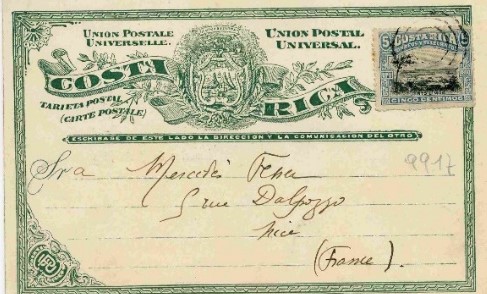 UNION POSTALE
UNIVERSELLE.
UNION POSTAL
UNIVERSAL.
COSTA RICA
TARJETA POSTAL
(CARTE POSTALE)
ESCRIBASE DE ESTE LADO LA DIRECCION Y LA COMUNICACION DEL OTRO
COSTA RICA
CINCO CENTIMOS
9917
Sra Mercedés
5 rue Dalpozzo
Nice
(France).